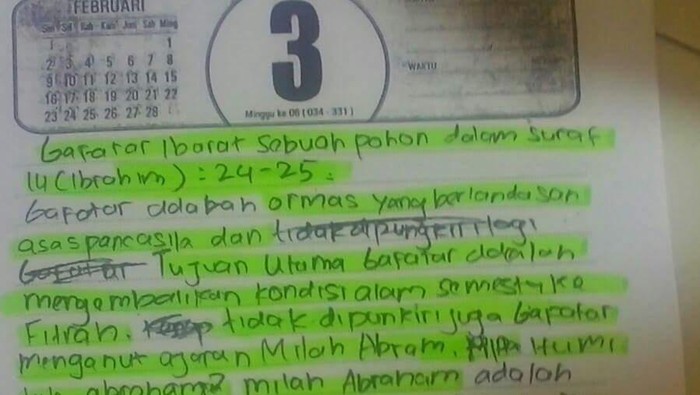 FEBRUARI
Sen Sel Rab Kam Jum Sab Ming
1
2 3 4 5 6 7 8
9 10 11 12 13 14 15
16 17 18 19 20 21 22
23 24 25 26 27 28
3
Minggu ke 06 (034 - 331)
WAKTU
Gafatar Ibarat sebuah pohon dalam surat
14 (Ibrahim) : 24-25.
Gafatar adalah ormas yang berlandasan
asas pancasila dan tidak dipungkiri lagi
Gafatar Tujuan Utama Gafatar adalah
mengembalikan kondisi alam semesta ke
Fitrah. tidak dipunkiri juga Gapatar
menganut ajaran Milah Abram.
abraham? milah Abraham adalah